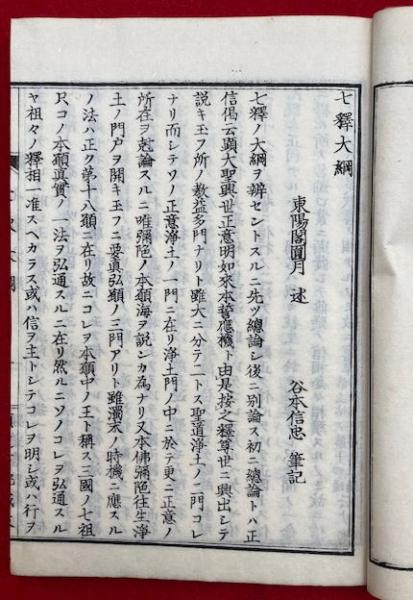 七釋大綱
東陽閣圓月 述　谷本信忠 筆記
七釋ノ大綱ヲ辨セントスルニ先ツ總論シ後ニ別論ス初ニ總論トハ正
信偈云顯大聖興世正意明如來本誓應機ト由是按之釋尊世ニ興出シテ
説キ玉フ所ノ敎益多門ナリト雖大ニ分テ二トス聖道淨土ノ二門コレ
ナリ而シテソノ正意淨土ノ一門ニ在リ淨土門ノ中ニ於テ更ニ正意ノ
所在ヲ尅論スルニ唯彌陀ノ本願海ヲ説ンカ為ナリ又本佛彌陀往生淨
土ノ門戸ヲ開キ玉フニ要眞弘願ノ三門アリト雖濁末ノ時機ニ應スル
ノ法ハ正ク第十八願ニ在リ故ニコレヲ本願中ノ王ト稱ス三國ノ七祖
只コノ本願眞實ノ一法ヲ弘通スルニ在リ然ルニソノコレヲ弘通スル
ヤ祖々ノ釋相一准スヘカラス或ハ信ヲ主トシテコレヲ明シ或ハ行ヲ